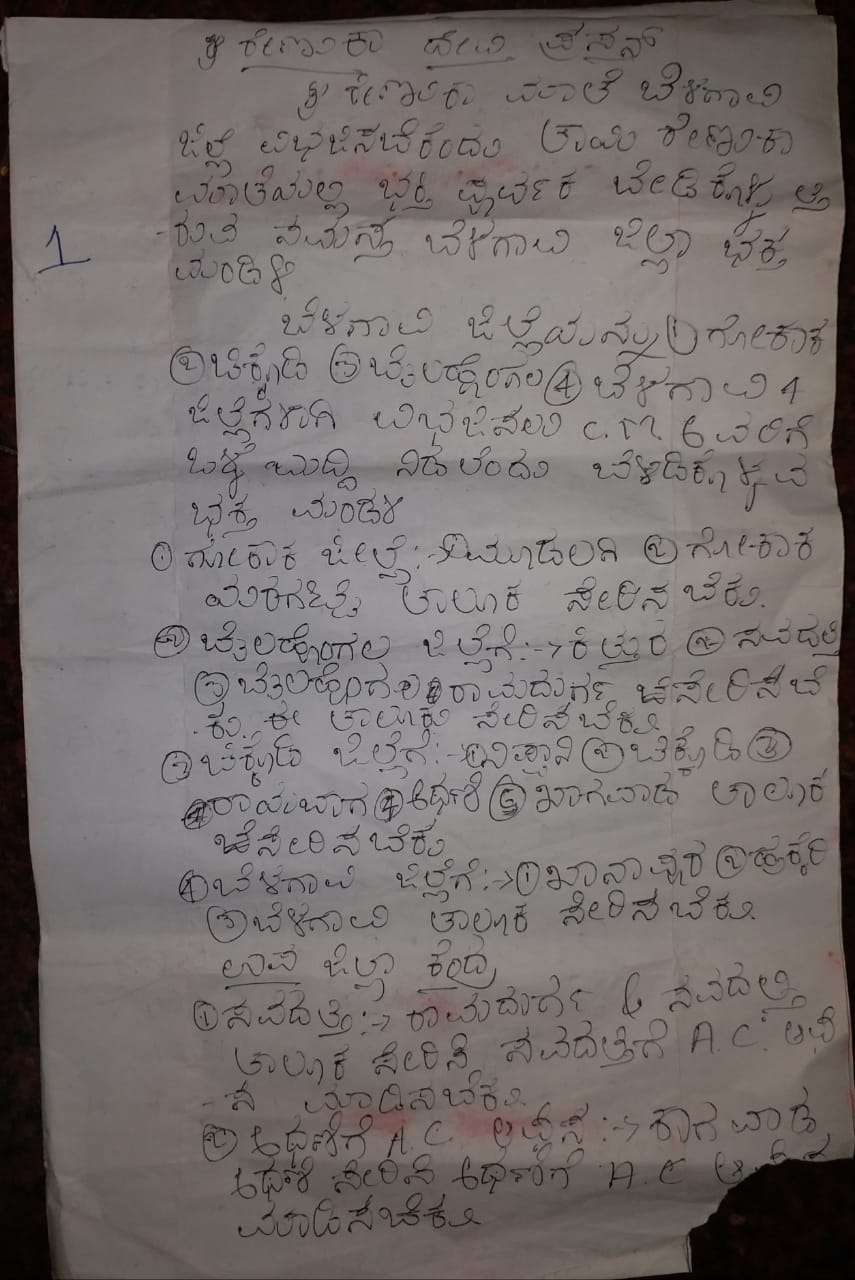 ಶ್ರೀ ರೇಣುಕಾ ದೇವಿ ಪ್ರಸನ್
ಶ್ರೀ ರೇಣುಕಾ ಮಾತೆ ಬೆಳಗಾವಿ
ಜಿಲ್ಲೆ ವಿಭಜಿಸಬೆಕೆಂದು ತಾಯಿ ರೇಣುಕಾ
ಮಾತೆಯಲ್ಲಿ ಭಕ್ತಿ ಪೂರ್ವಕ ಬೇಡಿಕೊಳ್ಳುತ್ತಿ
1 -ರುವ ಸಮಸ್ತ ಬೆಳಗಾವಿ ಜಿಲ್ಲಾ ಭಕ್ತ
ಮಂಡಳಿ
ಬೆಳಗಾವಿ ಜಿಲ್ಲೆಯನ್ನು ① ಗೋಕಾಕ
② ಚಿಕ್ಕೊಡಿ ③ ಬೈಲಹೊಂಗಲ ④ ಬೆಳಗಾವಿ 4
ಜಿಲ್ಲೆಗಳಾಗಿ ವಿಭಜಿಸಲು C.M. ಅವರಿಗೆ
ಒಳ್ಳೆ ಬುದ್ದಿ ನಿಡಲೆಂದು ಬೆಳಡಿಕೊಳ್ಳುವ
ಭಕ್ತ ಮಂಡಳಿ
① ಗೋಕಾಕ ಜಿಲ್ಲೆ:→ ① ಮೂಡಲಗಿ ② ಗೋಕಾಕ
ಯರಗಟ್ಟಿ ತಾಲೂಕ ಸೇರಿಸಬೆಕು.
② ಬೈಲಹೊಂಗಲ ಜಿಲ್ಲೆಗೆ:→ ಕಿತ್ತುರ ② ಸವದತ್ತಿ
③ ಬೈಲಹೊಂಗಲ ④ ರಾಮದುರ್ಗ ಸೇರಿಸಬೆ
ಕು. ಈ ತಾಲೂಕು ಸೇರಿಸಬೆಕು
③ ಚಿಕ್ಕೊಡಿ ಜಿಲ್ಲೆಗೆ:→ ① ನಿಪ್ಪಾನಿ ② ಚಿಕ್ಕೊಡಿ ③
ರಾಯಬಾಗ ④ ಅಥಣಿ ⑤ ಕಾಗವಾಡ ತಾಲೂಕ
ಸೇರಿಸಬೆಕು
④ ಬೆಳಗಾವಿ ಜಿಲ್ಲೆಗೆ:→ ① ಖಾನಾಪೂರ ② ಹುಕ್ಕೆರಿ
③ ಬೆಳಗಾವಿ ತಾಲೂಕ ಸೇರಿಸಬೆಕು.
ಉಪ ಜಿಲ್ಲಾ ಕೇಂದ್ರ
① ಸವದತ್ತಿ:→ ರಾಮದುರ್ಗ & ಸವದತ್ತಿ
ತಾಲೂಕ ಸೇರಿಸಿ ಸವದತ್ತಿಗೆ A.C. ಆಫಿ
-ಸ ಮಾಡಿಸಬೆಕು.
② ಅಥಣಿಗೆ A.C. ಆಫೀಸ:→ ಕಾಗವಾಡ
ಅಥಣಿ ಸೇರಿಸಿ ಅಥಣಿಗೆ A.C
ಮಾಡಿಸಬೆಕು